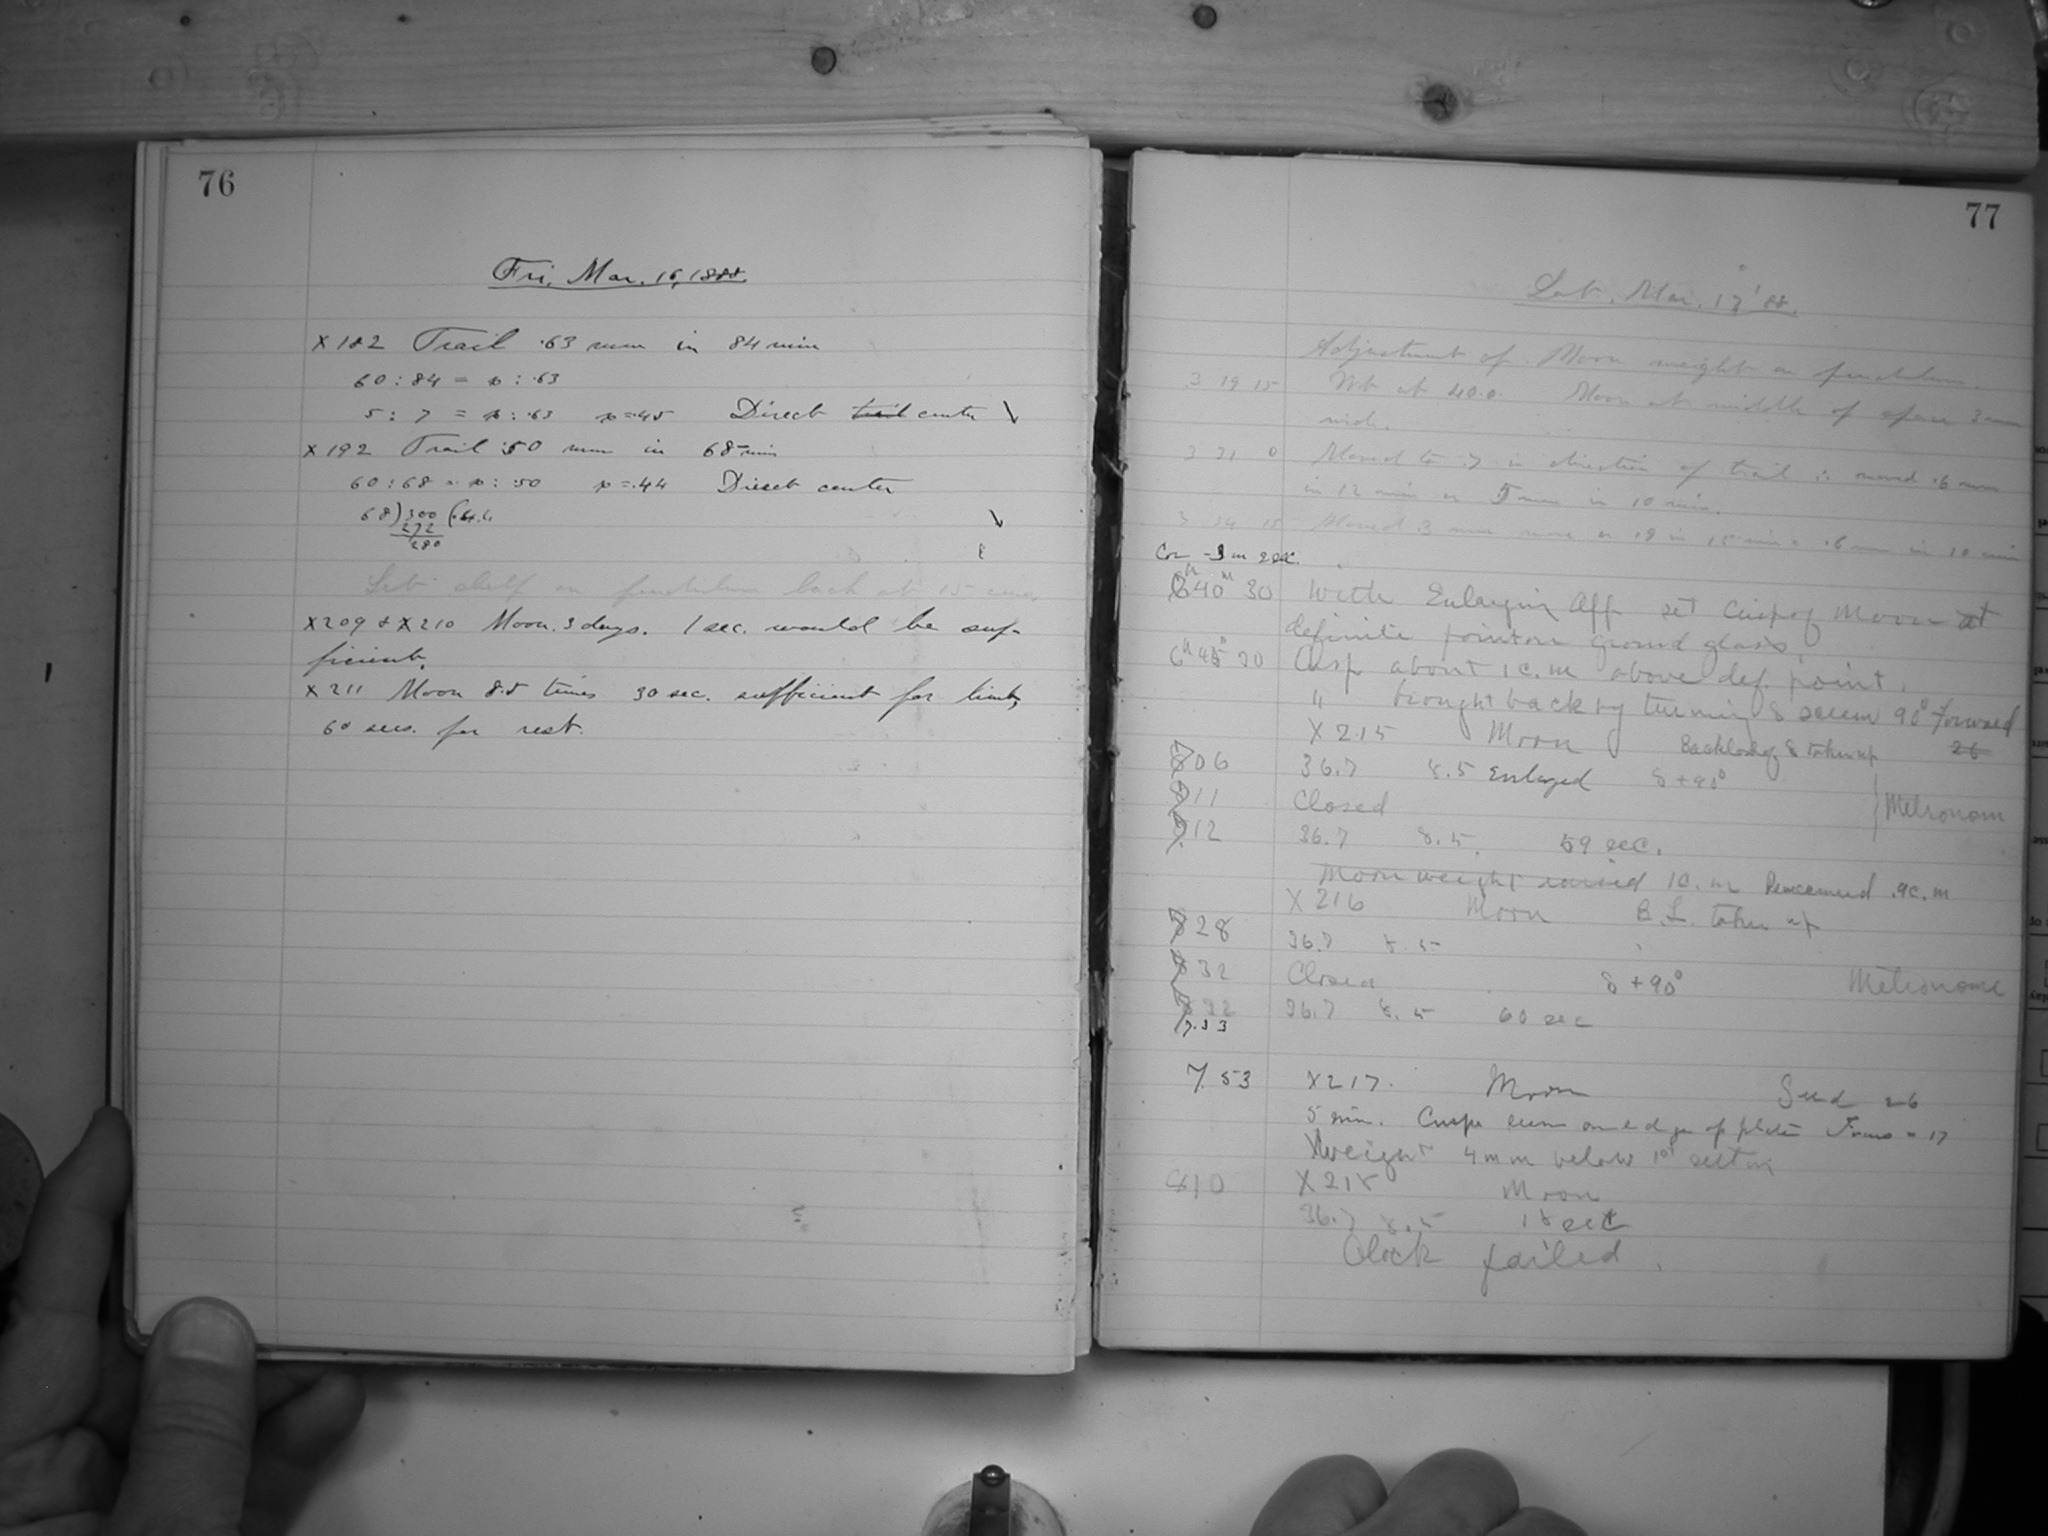 76
Fri, Mar. 16, 1888.
X182 Trail .63 mm in 84 min
60 : 84 = x : .63
5 : 7 = x : .63 x = .45 Direct trail center
X192 Trail .50 mm in 68 min
60 : 68 = x : .50 x = .44 Direct center
68)300(.44
272
280
Set shelf on pendulum back at 15 cm
X209 & X210 Moon. 3 days. 1 sec. would be suf-
ficient.
X211 Moon 8.5 times 30 sec. sufficient for limb,
60 secs. for rest.
77
Sat. Mar. 17 '88.
Adjustment of Moon weight on pendulum.
3 19 15 Wt at 40.0. Moon at middle of space 3 mm
wide.
3 31 0 Moved to .7 in direction of trail ∴ moved .6 mm
in 12 min or .5 mm in 10 min.
3 34 15 Moved .3 mm more or .9 in 15 min = .6 mm in 10 min
Cor -3 m 2 sec.
6h 40m 30 With Enlarging App. set Cusp of Moon at
definite point on ground glass.
6h 45m 30 Cusp about 1 c.m above def. point.
" brought back by turning δ screw 90° forward
X 215 Moon Backlash of δ taken up 26
06 36.7 8.5 Enlarged δ + 90°
11 Closed Metronome
12 36.7 8.5. 59 sec.
Moon weight raised 1 c.m Remeasured .9 c.m
X 216 Moon B.L. taken up
28 36.7 8.5
32 Closed δ + 90° Metronome
32 36.7 8.5 60 sec
7.33
7 53 X217. Moon Seed 26
5 min. Cusps seen on edge of plate Focus = 17
Weight 4 mm below 1st setting
8 10 X 218 Moon
36.7 8.5 18 sec
Clock failed.